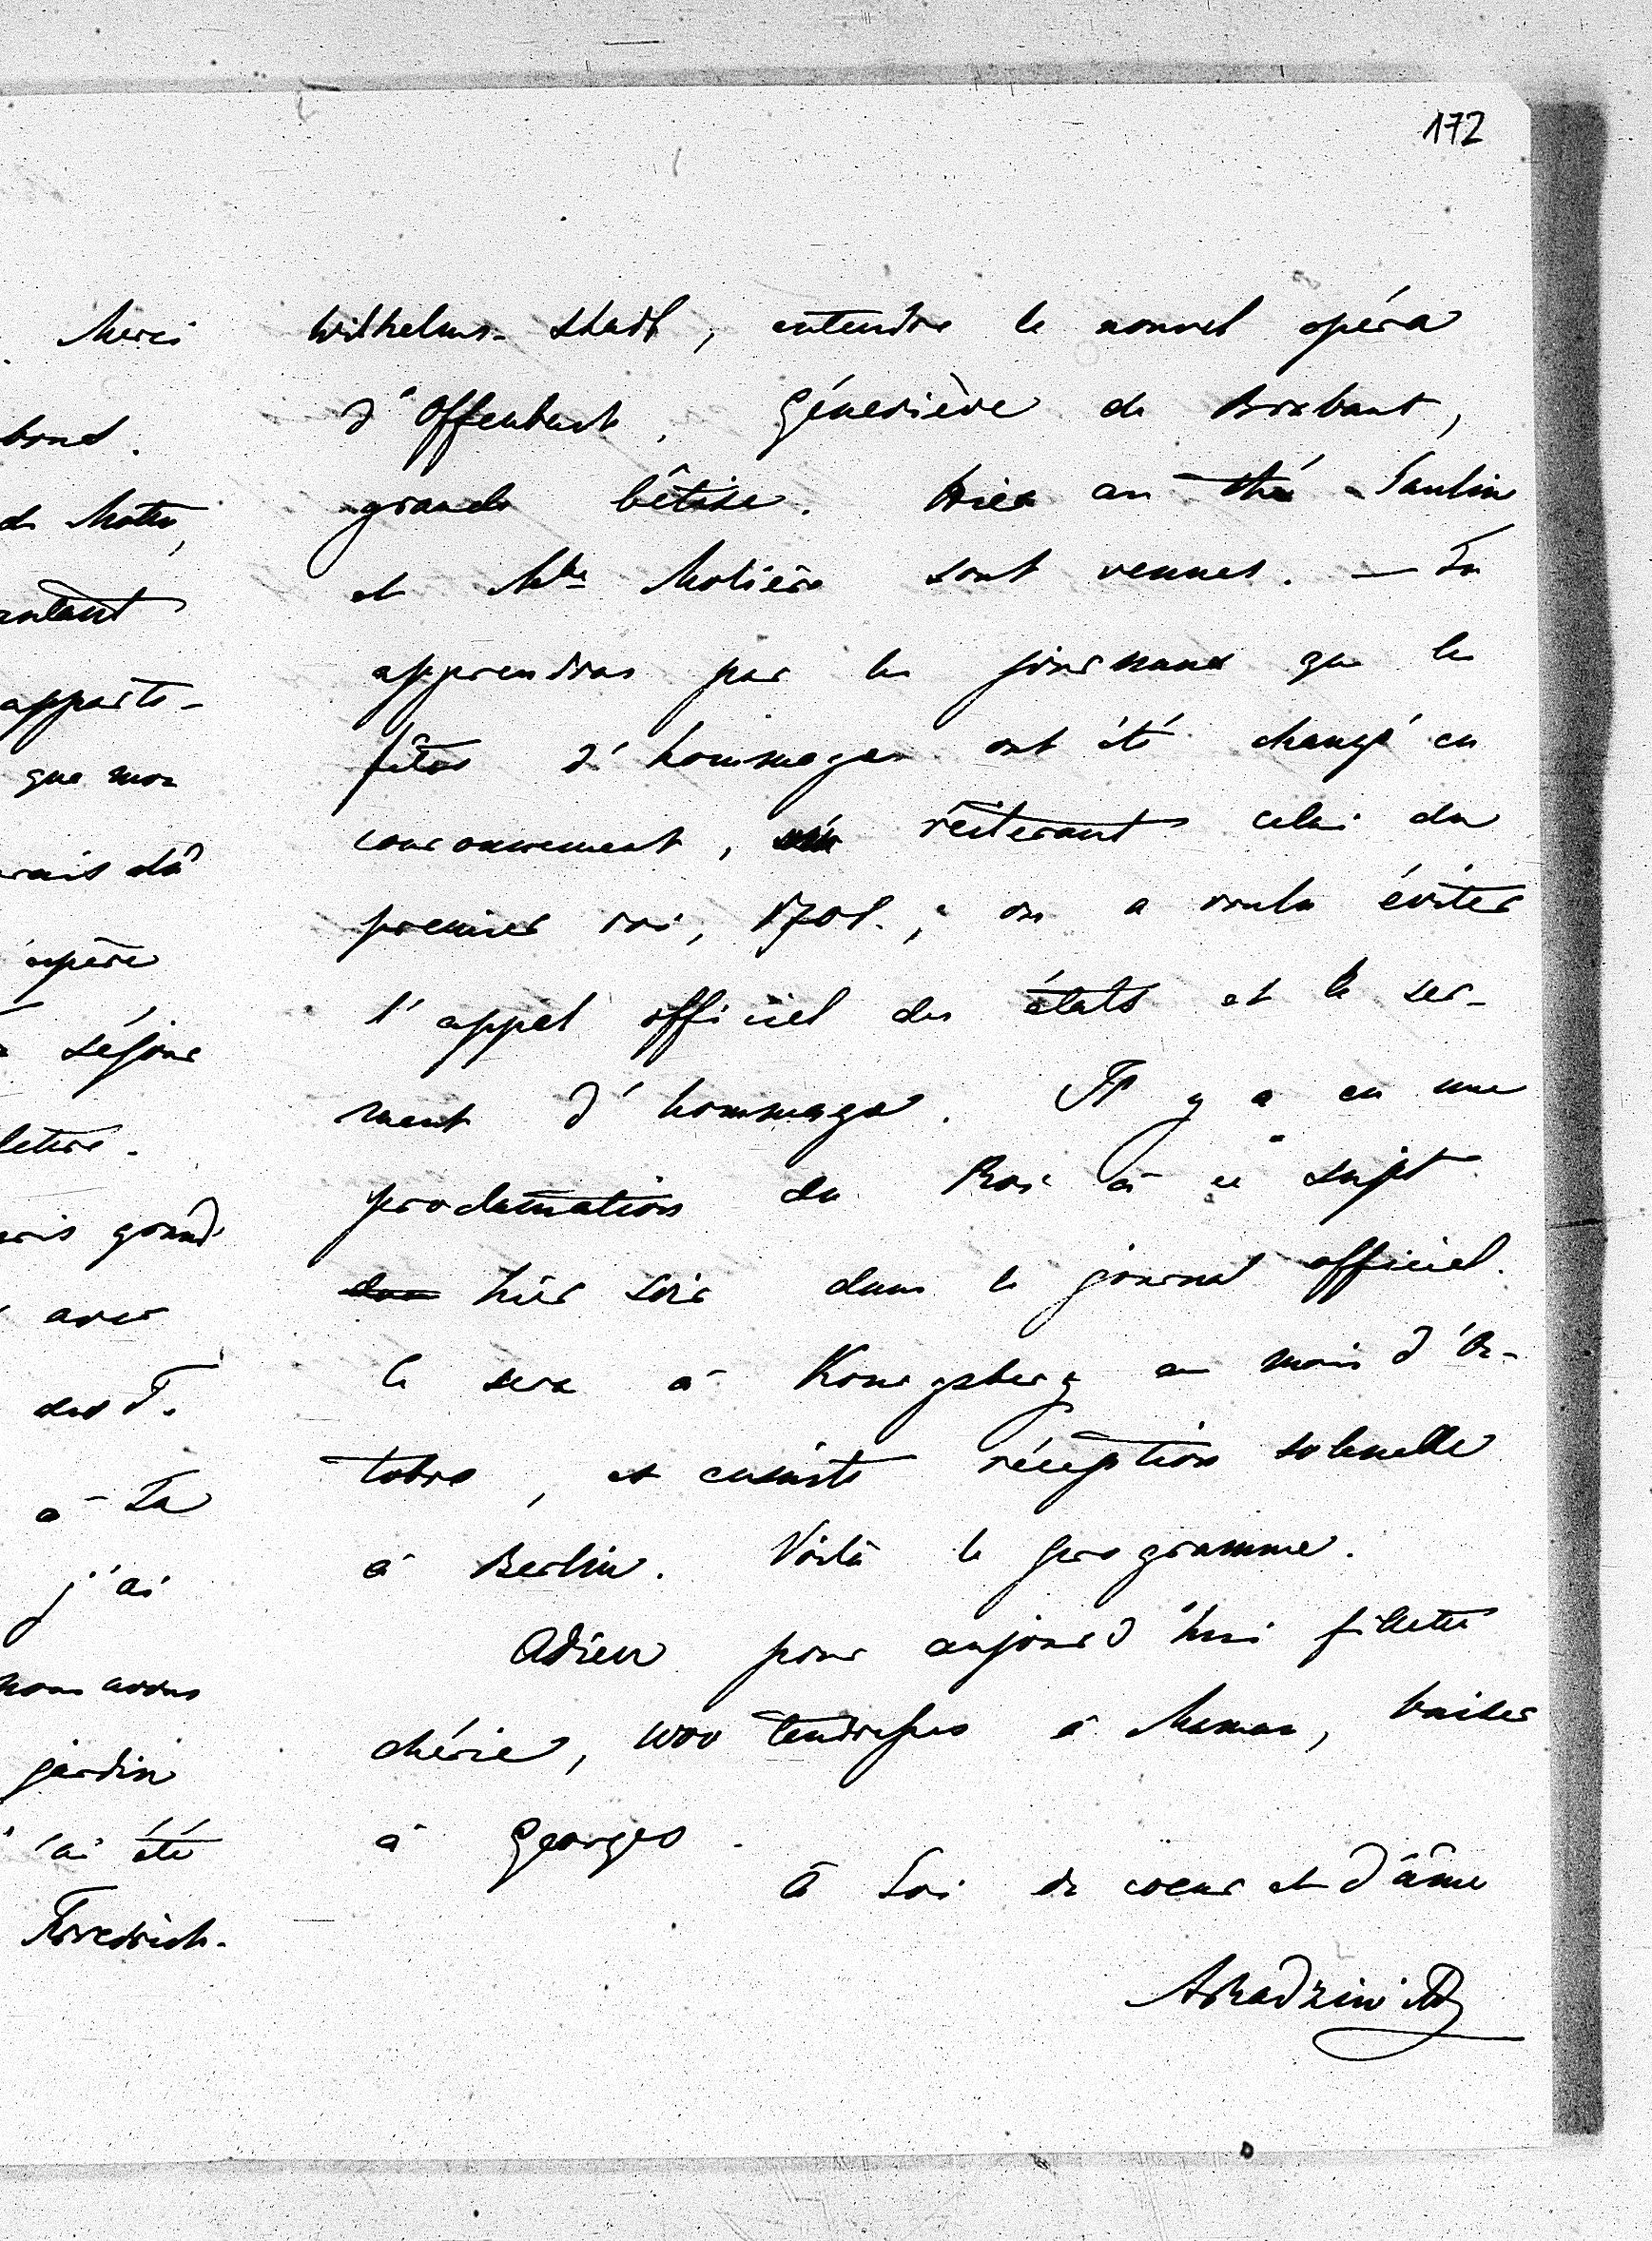 172
Merci
bord.
de Motte,
autant
apparte-
que mon
rais dû
opère
séjour
lettre.
grand
avec
des T.
à Ta
j'ai
nous avons
jardin
j'ai été
Friedrich-
Wilhelms-Stadt, entendre le nouvel opéra
d'Offenbach, Généviève de Brabant,
grande bêtise. Hier au thé Pauline
et Mlle Molière sont venues. — Tu
apprendras par les journaux que les
fêtes d'hommage ont été changé en
couronnement, réiterant celui du
premier roi, 1701.; on a voulu éviter
l'appel officiel des états et le ser-
ment d'hommage. Il y a eu une
proclamation du Roi à ce sujet
hier soir dans le journal officiel.
Ce sera à Konigsberg au mois d'Oc-
tobre, et ensuite réception solenelle
à Berlin. Voilà le programme.
Adieu pour aujourd'hui fillette
chérie, 1000 tendresses à Maman, baiser
à Georges.
à Toi de coeur et d'âme